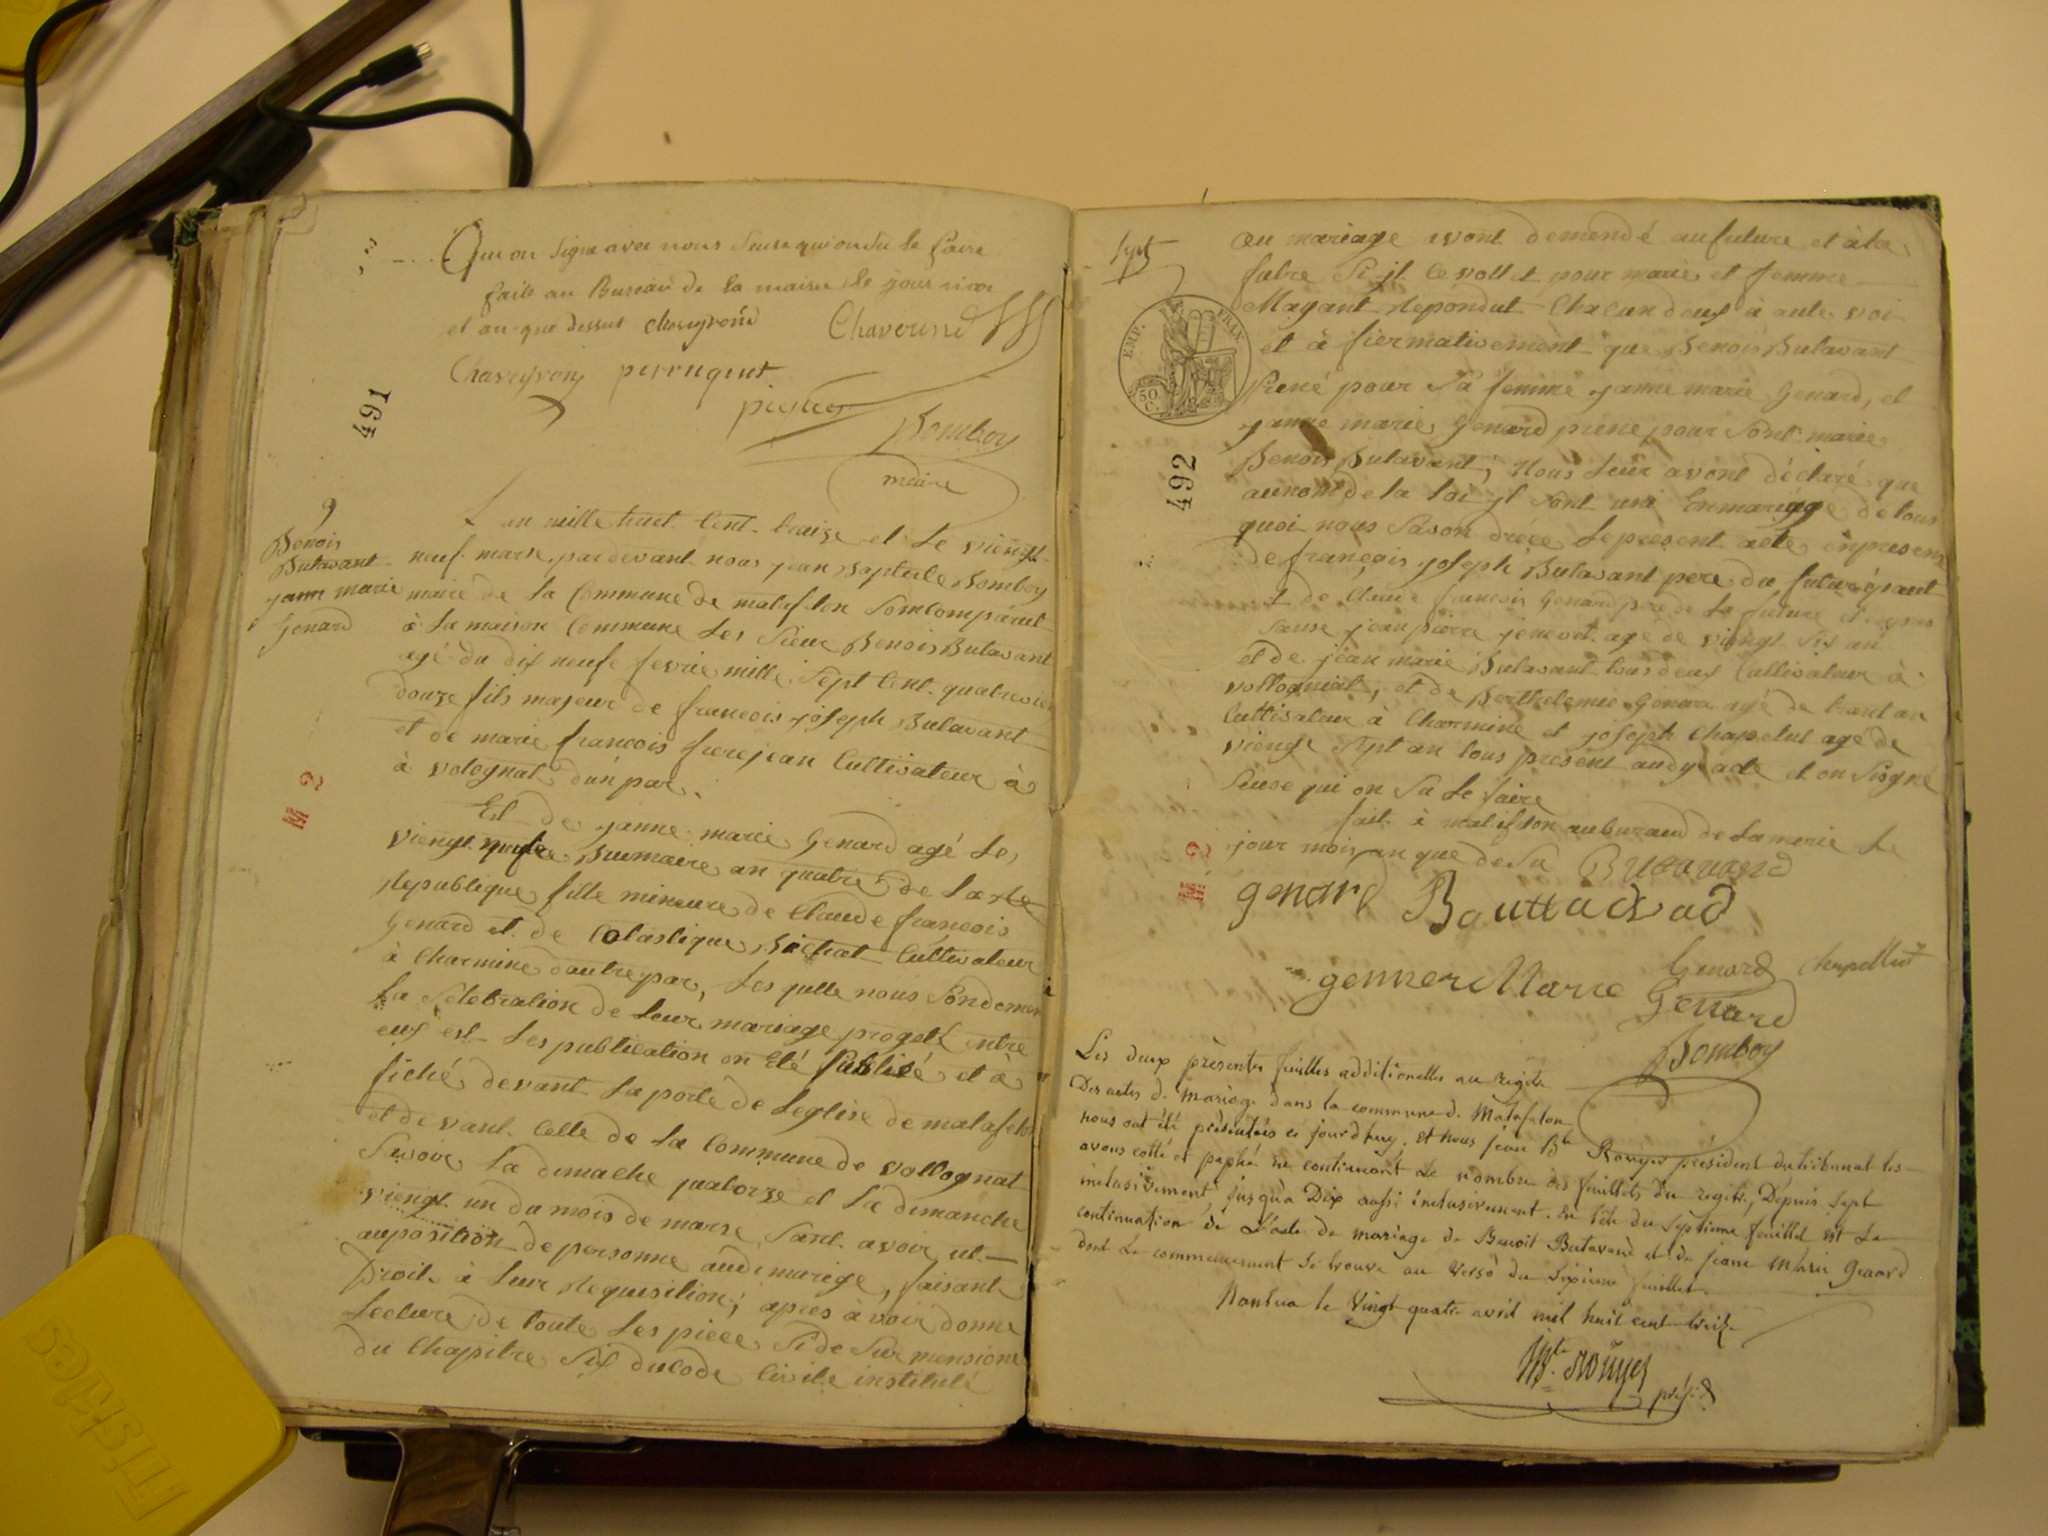 Qui on signé avec nous seuse qui on su le faire
faite au Bureau de la mairie le jour mois
et an que dessus chaveyrond Chaverind
Chaveyron perruquet
Bomboy
maire
491
9
Benois
Butavant
janne marie
Genard
L an mille huit Cent traize et le viengt
neuf marse, par devant nous jean Baptiste Bomboy
maire de la Commune de matafelon Son Comparut
à la maison Commune Les Sieur Benois Butavant
agé du dix neufe fevrié mille Sept Cent quatrevien
douze fils majeur de francois joseph Butavant
et de marie francois frerejean Cultivateur à
à volognat d'un par.
Et de janne marie Genard agé Le
viengt neufe Brumaire an quatre de La Re
Republique fille mineure de Claude françois
Genard et de Colastique Bichat Cultivateur
à Charmine d'autre par, Les quelle nous Son demen
La Selebration de Leur mariage progeté entre
eux est Les publication on Eté Publié et à
fiché devant La porte de Leglise de matafelon
et devant Celle de La Commune de vollognat
Savoir La dimache quatorze et La dimanche
viengt un du mois de marse Sant avoir ut
auposition de personne audi mariage, faisant
Droit à Leur Requisition; apres avoir donné
Lecture de toute Les piece Si de Sur mensioné
du Chapitre Six du Code Civile institulé
sept
au mariage avont demendé au future et à la
future Si jl Ce vollet pour marie et femme
Mayant Repondut Chacun deux à aute voi
et à fiermativement que Benois Butavant
Prené pour Sa femme janne marie Genard, et
janne marie Genard prene pour Sont marie
Benois Butavant; Nous Leur avont déclaré que
au nom de la Loi jl Sont uni En mariage de tous
quoi nous Sason dréce Le present acte en presens
de françois joseph Butavant pere du futur épaut
et de Claude francois Genard pere de La future et
jean pierre jenevet agé de viengt Six an
et de jean marie Butavant tous deux Cultivateur à
vollognat, et de Berthelemie Genard agé de trant an
Cultivateur à Charmine et joseph Chapelut agé de
viengt Sept an tous present audy acte et on Signé
Seuse qui on Su Le faire
fait à matafelon au buraud de La merie Le
jour mois an que desu Butavand
EMP. FRAN.
50 C.
492
genard Bouttavad
genner Marie Genard Chapellut
Genard
Bomboy
Les deux présentes feuilles additionelles au registre
Des actes de mariage dans la commune de Matafelon
nous ont été présentées ce jourdhuy, et Nous jean Bte Rouyer président du tribunal les
avons cotté et paraphé en continuant Le nombre des feuillets du registre, Depuis Sept
inclusivement, jusqu'a Dix aussi inclusivement. En tête du Septieme feuillet est La
continuation de L'acte de mariage de Benoit Butavand et de Jeanne Marie Genard
dont Le commencement Se trouve au verso du Sixieme feuillet.
Nantua le Vingt quatre avril mil huit cent treize
Bte Rouyer
présidt
Mistykes